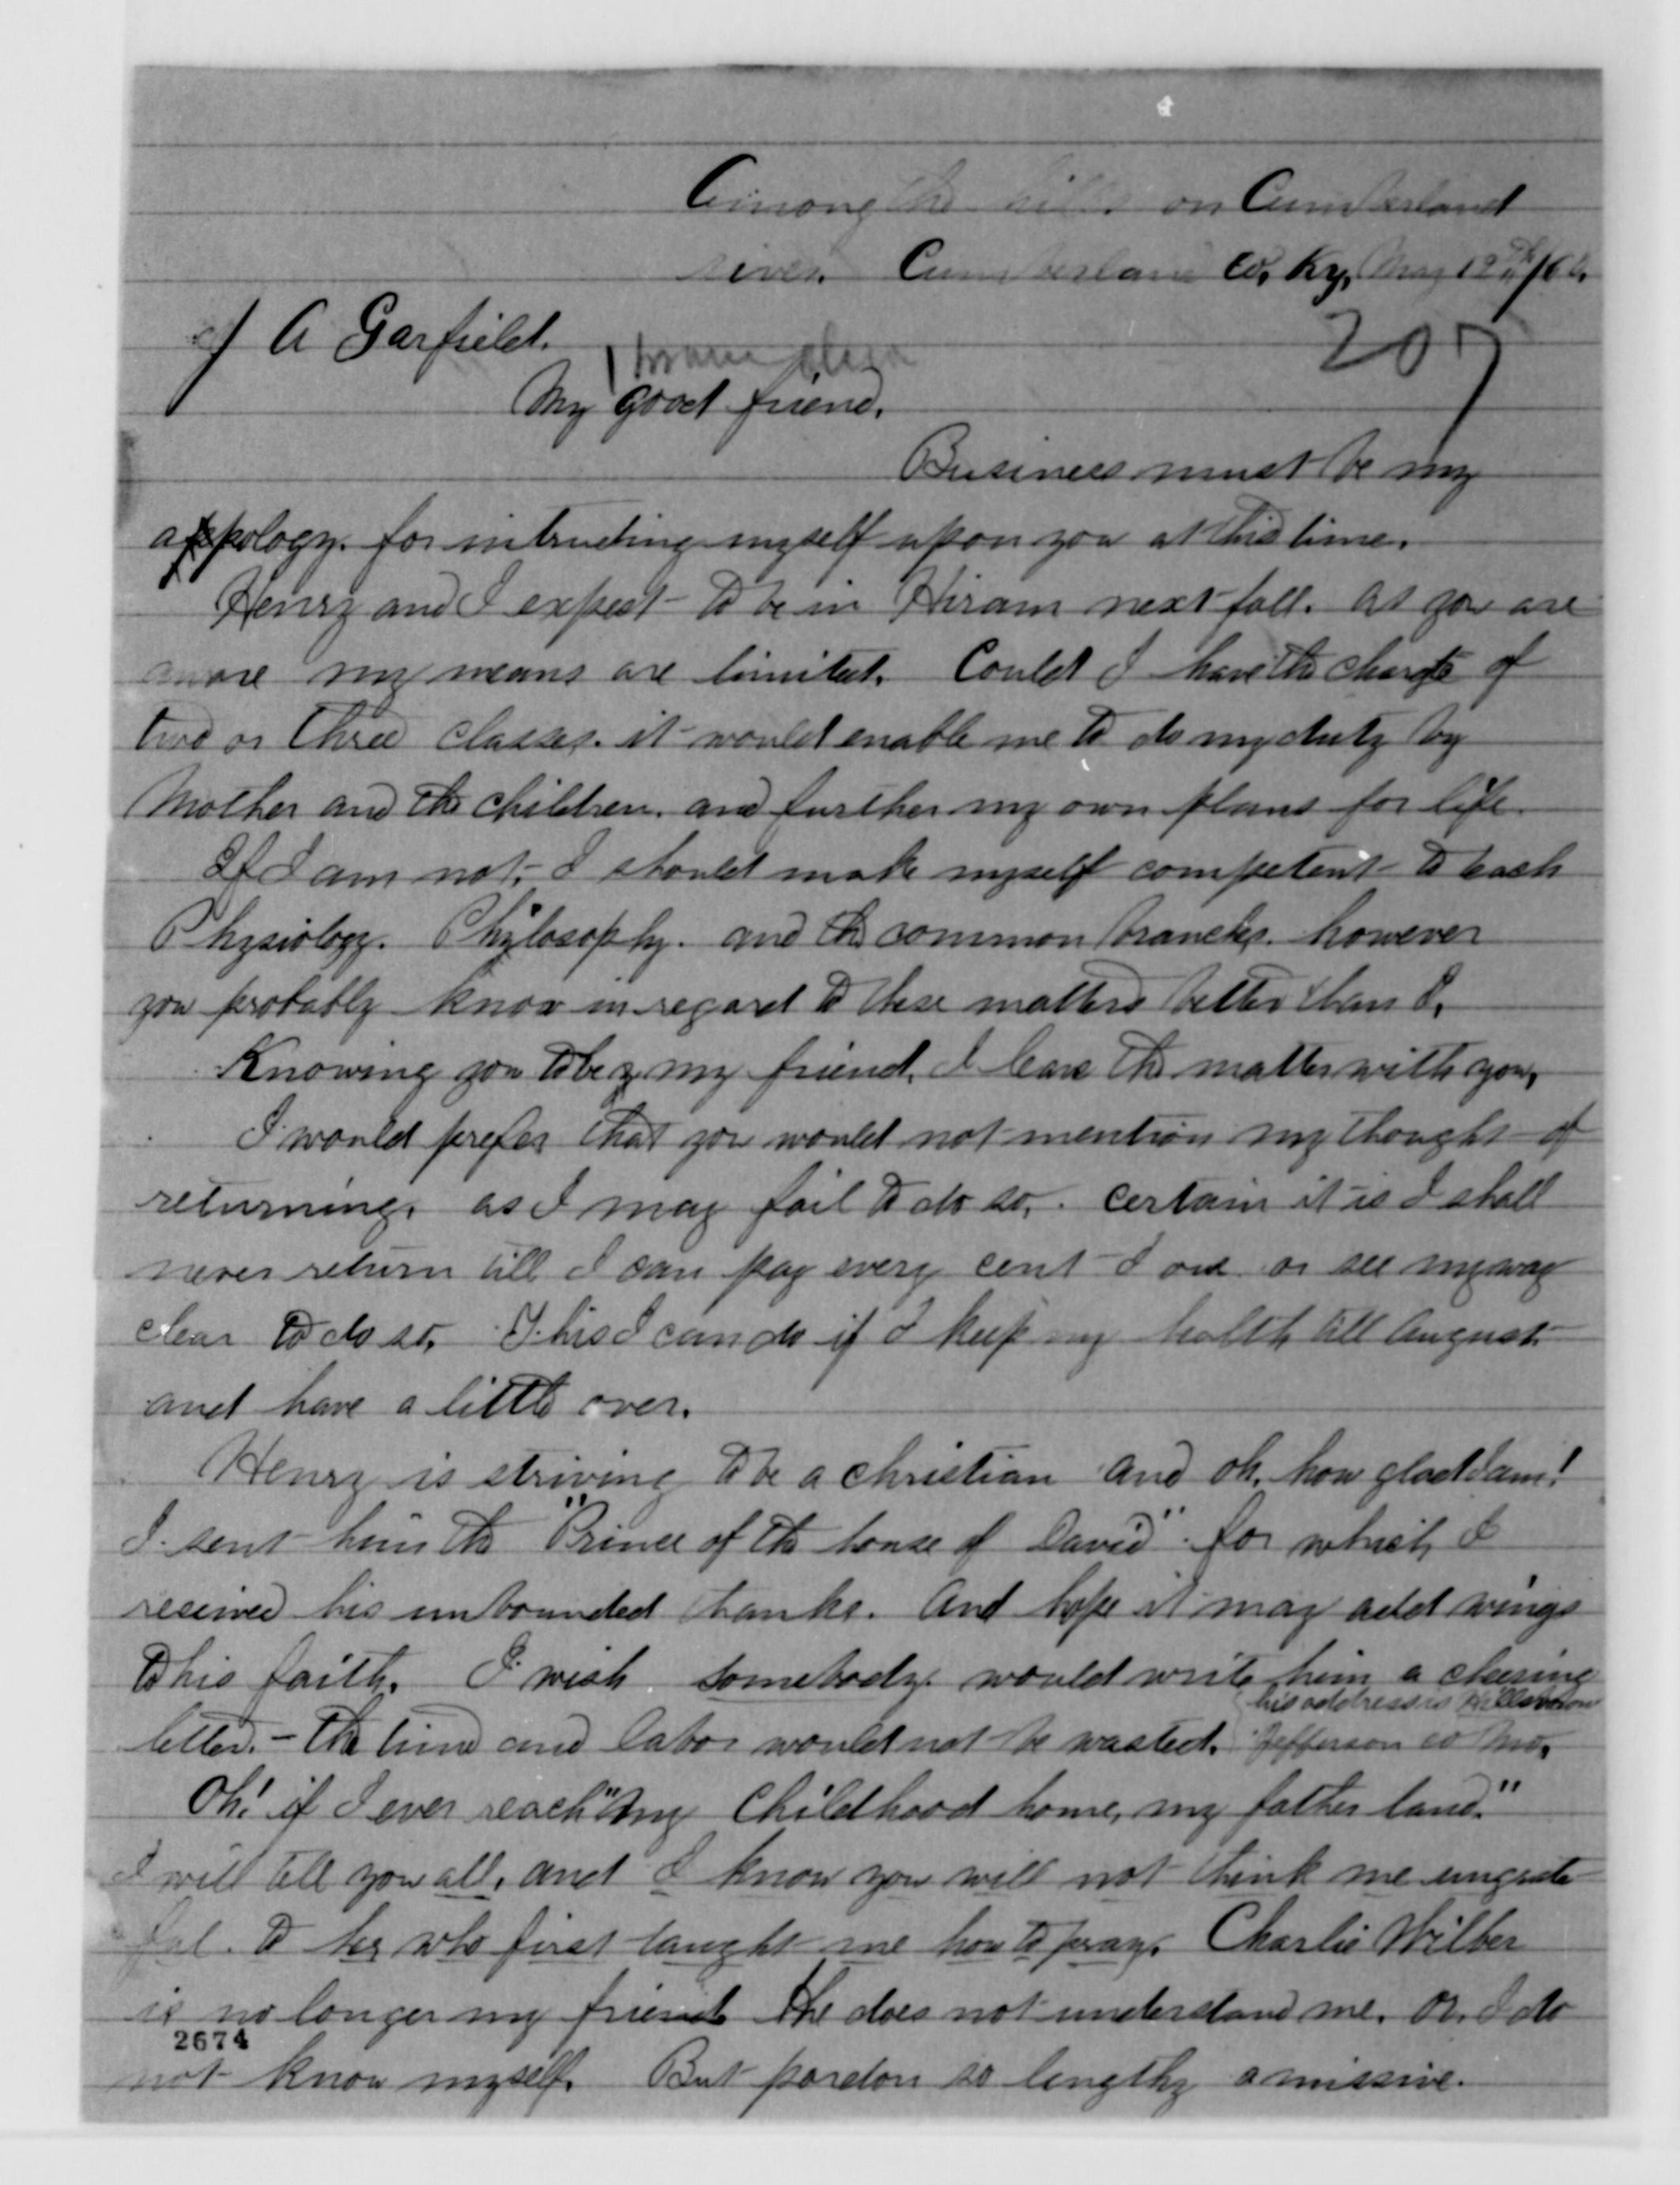 Among the hills on Cumberland
river. Cumberland Co. Ky, May 12th /60.
J A Garfield.
207
My good friend.
Business must be my
appology. for intruding myself upon you at this time.
Henry and I expect to be in Hiram next fall. as you are
aware my means are limited. Could I have the charge of
two or three classes. it would enable me to do my duty by
Mother and the children. and further my own plans for life.
If I am not, I should make myself competent to teach
Physiology. Philosophy. and the common branches. however
you probably know in regard to these matters better than I.
Knowing you to be my friend. I leave the matter with you.
I would prefer that you would not mention my thought of
returning. as I may fail to do so. certain it is I shall
never return till I can pay every cent I owe or see my way
clear to do so. This I can do if I keep my health till August.
and have a little over.
Henry is striving to be a christian and oh, how glad I am!
I sent him the "Prince of the house of David" for which I
received his unbounded thanks. And hope it may add wings
to his faith. I wish somebody would write him a cheering
his address is Hillsborow
letter. - The time and labor would not be wasted. Jefferson co Mo.
Oh! if I ever reach "my Childhood home, my father land."
I will tell you all. and I know you will not think me ungrate
ful. to her who first taught me how to pray. Charlie Wilber
is no longer my friend he does not understand me. or. I do
2674
not know myself. But pardon so lengthy a missive.